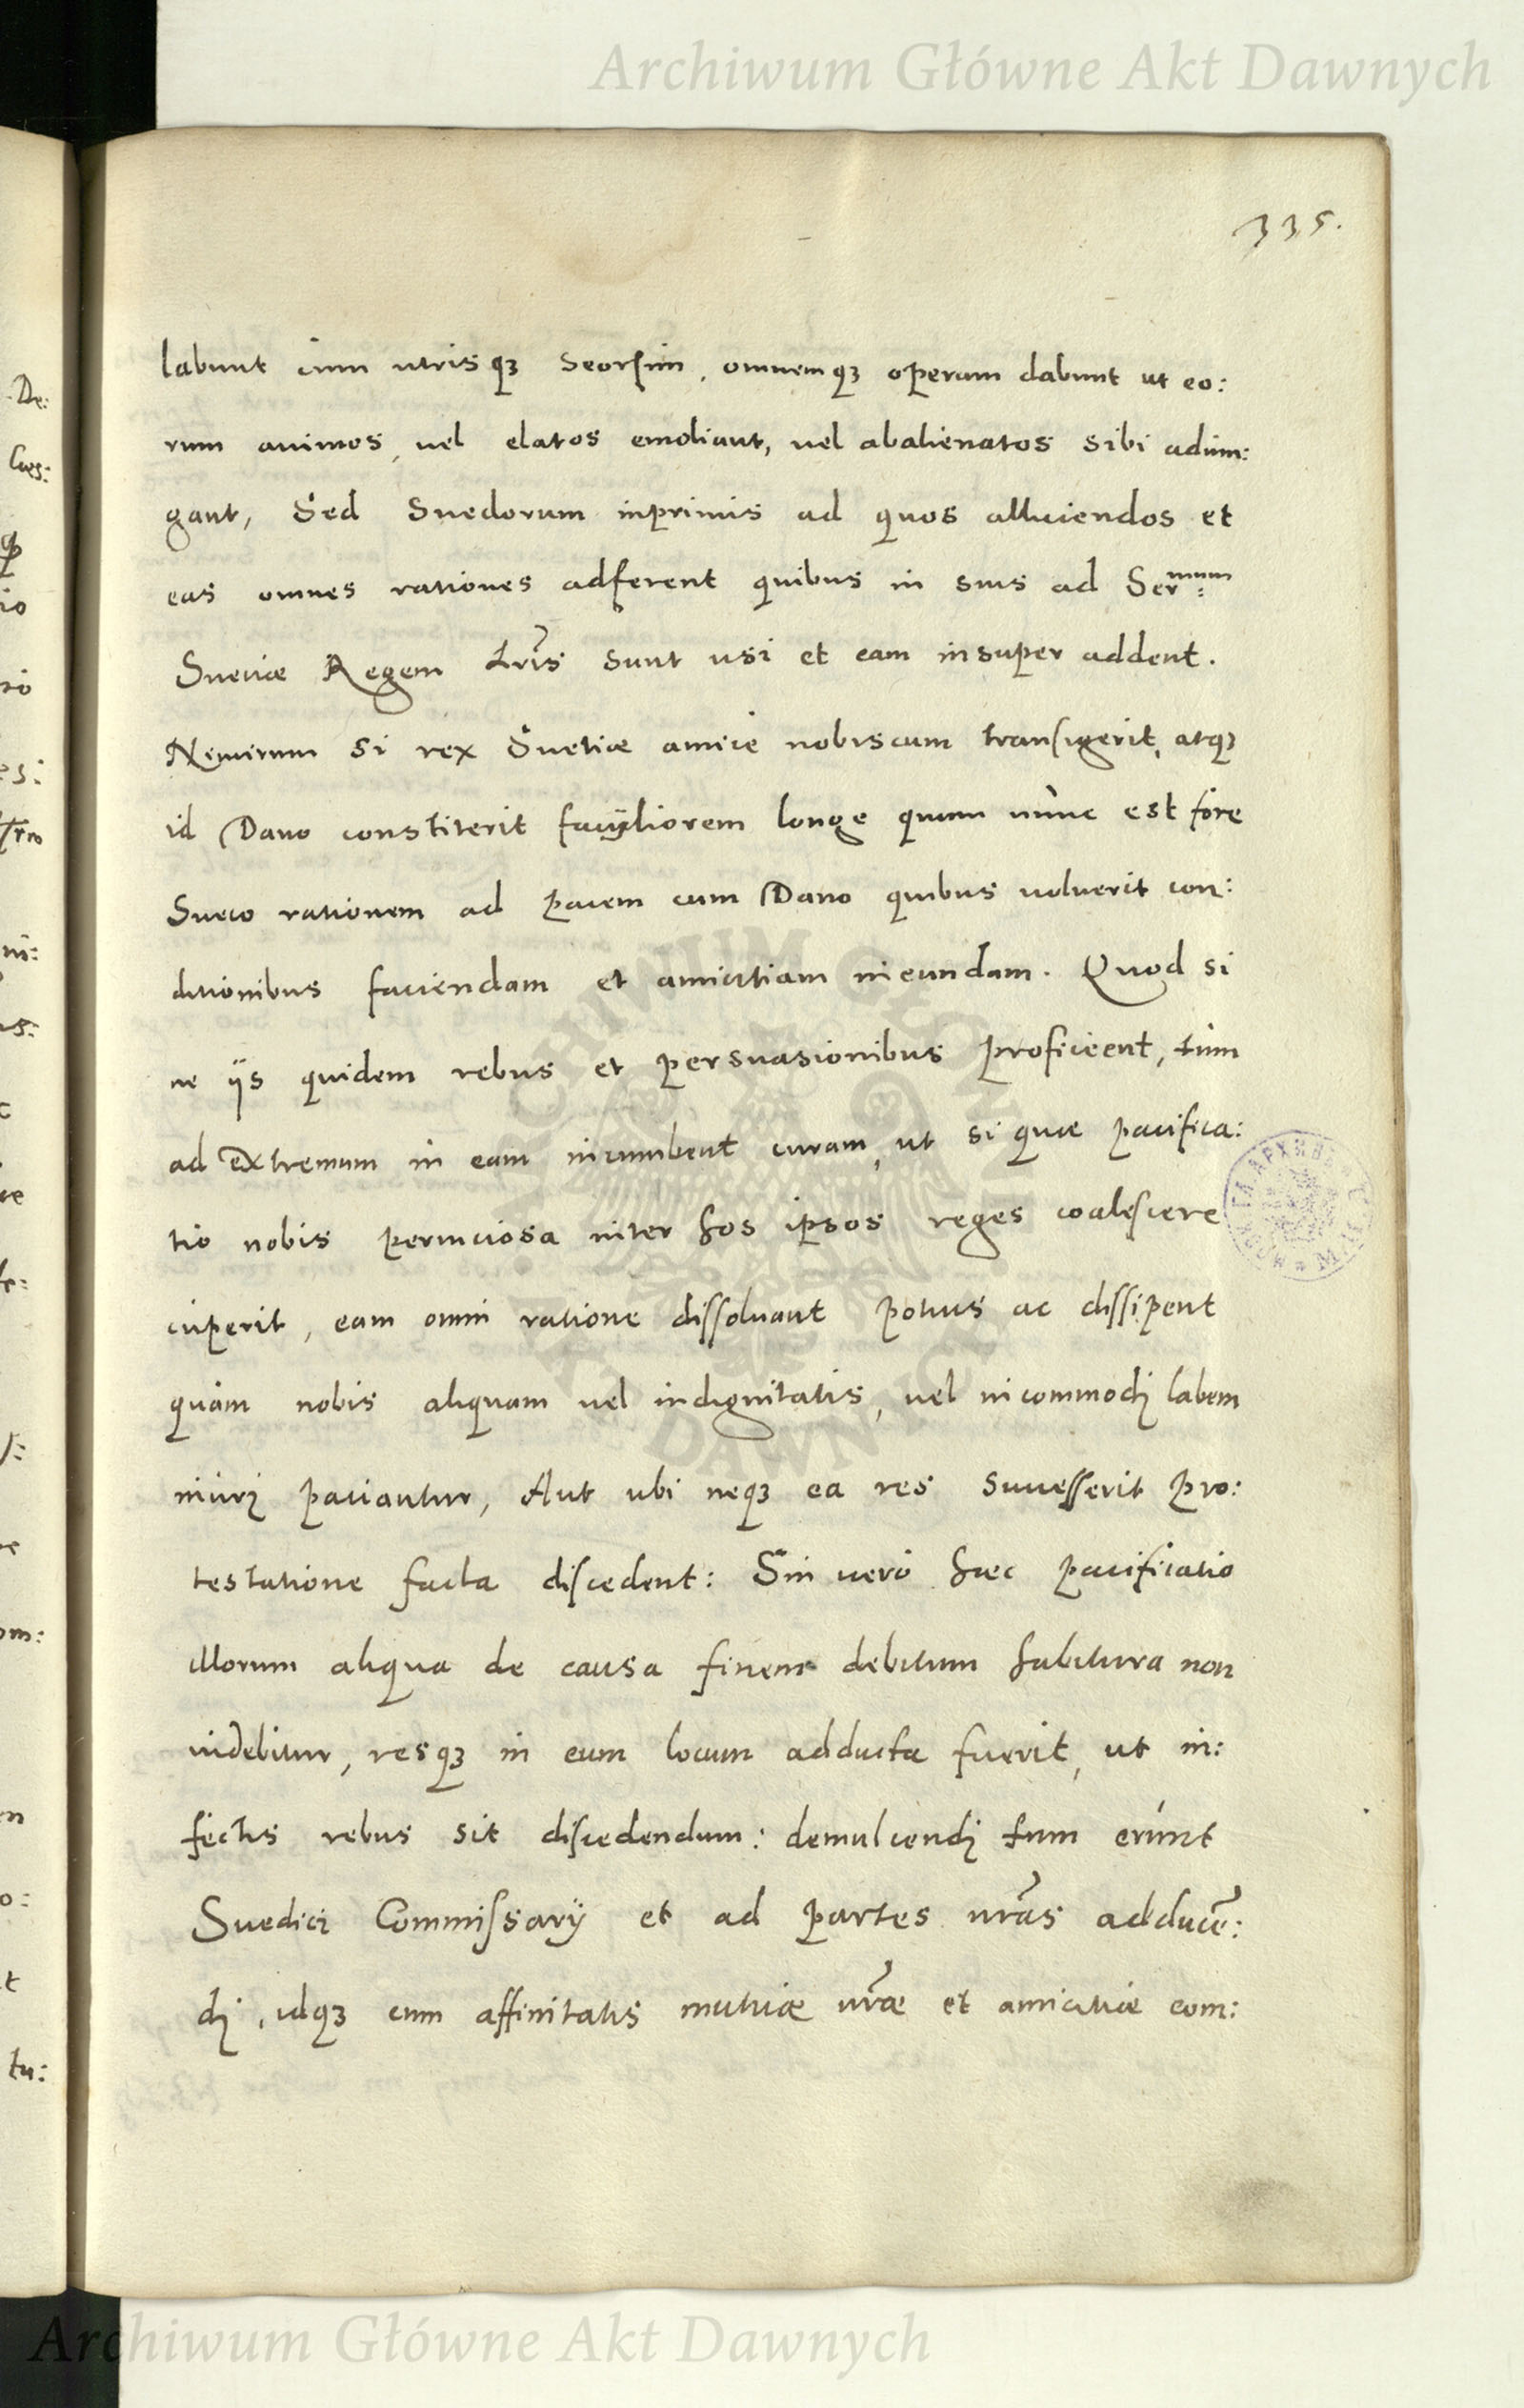 Archiwum Główne Akt Dawnych
335.
labunt cum utrisqꝫ seorsim, omnemqꝫ operam dabunt ut eo:
rum animos, vel elatos emoliant, vel abalienatos sibi adiun:
gant, Sed Suedorum inprimis ad quos alliciendos et
eas omnes rationes adferent quibus in suis ad Ser:mum
Sueciæ Regem Lr̃is sunt usi et eam insuper addent.
Nimirum si rex Suetiæ amice nobiscum transigerit, atqꝫ
id Dano constiterit facyliorem longe quam nunc est fore
Sueco rationem ad pacem cum Dano quibus voluerit con:
ditionibus faciendam et amicitiam ineundam. Quod si
ne ijs quidem rebus et persuasionibus proficient, tum
ad extremum in eam incumbent curam, ut si quæ pacifica:
tio nobis perniciosa inter hos ipsos reges coalescere
ceperit, eam omni ratione dissoluant potius ac dissipent
quàm nobis aliquam vel indignitatis, vel incommodj labem
iniurj patiantur, Aut ubi neqꝫ ea res successerit pro:
testatione facta discedent: Sin verò hæc pacificatio
illorum aliqua de causa finem debitum habitura non
videbitur, resqꝫ in eum locum adducta fuerit, ut in:
fectis rebus sit discedendum: demulcendj tum erunt
Suedici Commissarij et ad partes nr̃as adducẽ:
dj, idqꝫ cum affinitatis mutuæ nr̃æ et amicitiæ com:
Archiwum Główne Akt Dawnych